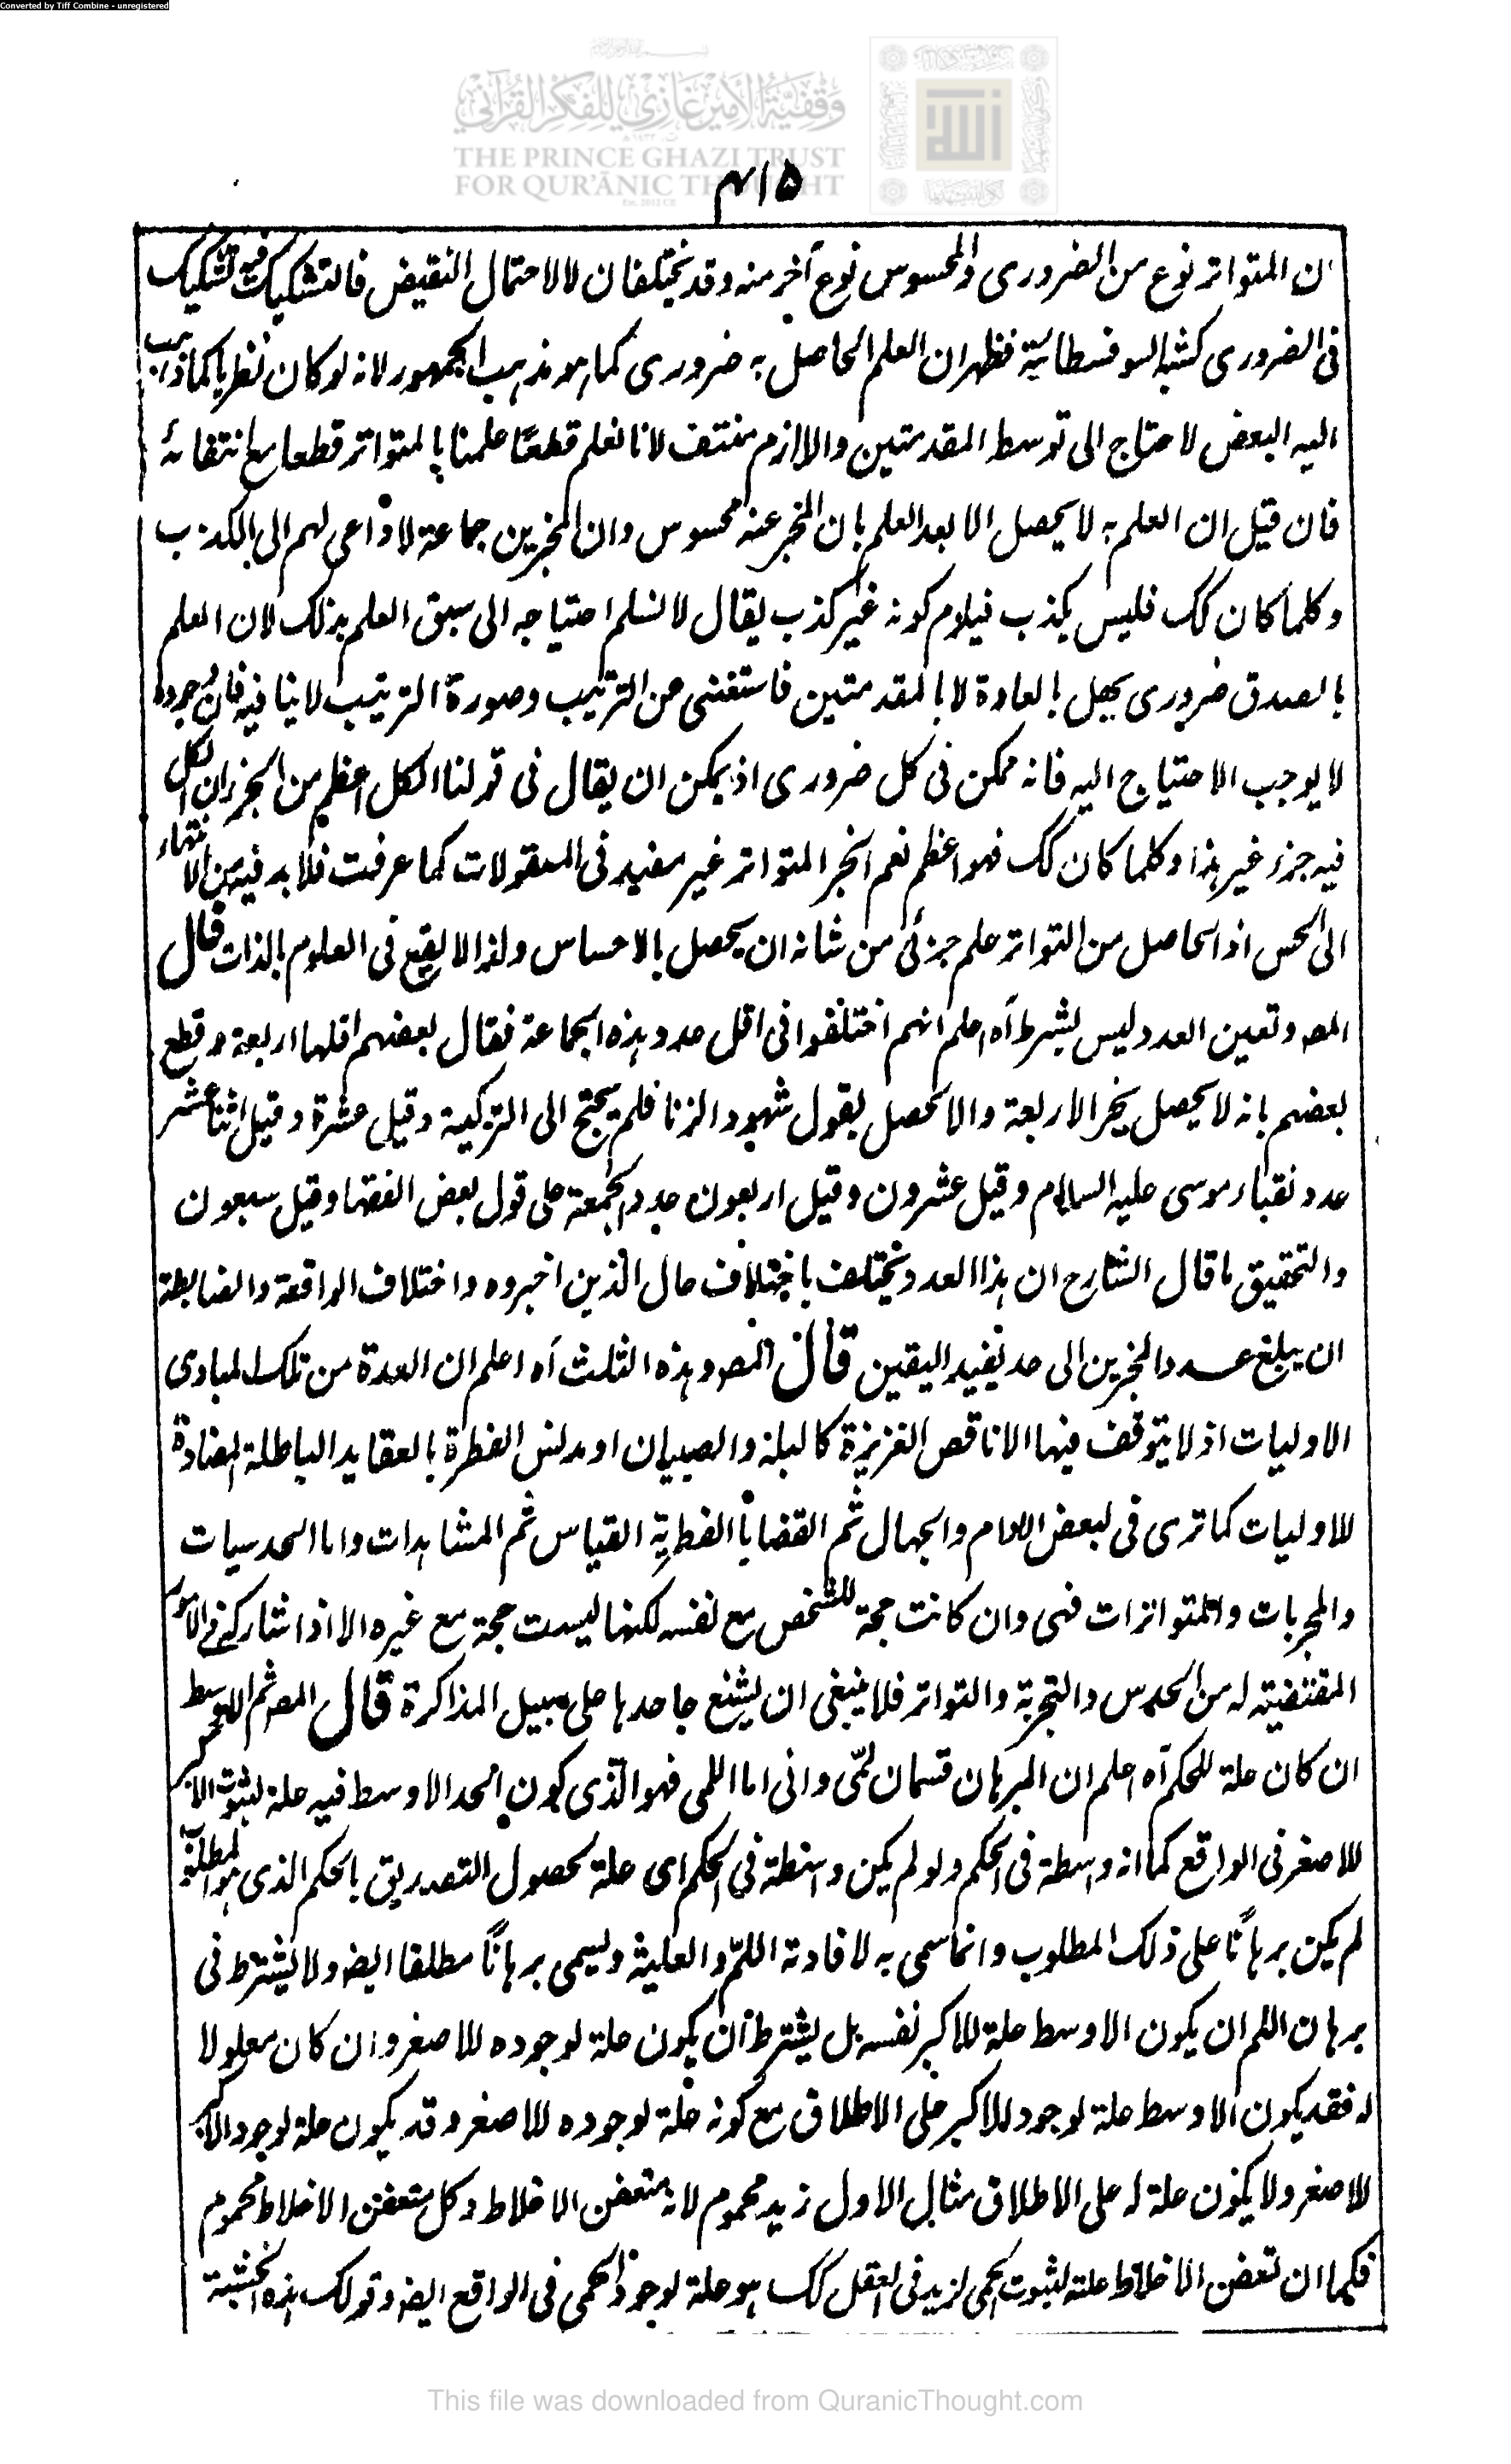 Converted by Tiff Combine - unregistered
وقفية الأمير غازي للفكر القرآني
THE PRINCE GHAZI TRUST
FOR QUR'ĀNIC THOUGHT
۴۱۵
ان المتواتر نوع من الضروری والمحسوس نوع آخر منه وقد تختلفان لا لاحتمال النقیض فالتشکیک فیه تشکیک
فی الضروری کشبه السوفسطائیة فظهر ان العلم الحاصل به ضروری کما هو مذهب الجمهور لانه لو کان نظریا کما ذهب
الیه البعض لاحتاج الی توسط المقدمتین واللازم منتف لانا نعلم قطعًا علمنا بالمتواتر قطعا مع انتفائه
فان قیل ان العلم به لا یحصل الا بعد العلم بان المخبر عنه محسوس وان المخبرین جماعة لا داعی لهم الی الکذب
وکلما کان کک فلیس بکذب فیلزم کونه غیر کذب یقال لا نسلم احتیاجه الی سبق العلم بذلک لان العلم
بالصدق ضروری یحصل بالعادة لا بالمقدمتین فاستغنی عن الترتیب وصورة الترتیب لا ینافیه فان وجوده
لا یوجب الاحتیاج الیه فانه ممکن فی کل ضروری اذ یمکن ان یقال فی قولنا الکل اعظم من الجزء ان الکل
فیه جزء غیر هذا وکلما کان کک فهو اعظم نعم الخبر المتواتر غیر مفید فی المعقولات کما عرفت فلا بد فیه من الانتهاء
الی الحس اذ الحاصل من التواتر علم جزئی من شانه ان یحصل بالاحساس ولذا لا یقع فی العلوم بالذات قال
المص وتعین العدد لیس بشرط آه اعلم انهم اختلفوا فی اقل عدد هذه الجماعة فقال بعضهم اقلها اربعة وقطع
بعضهم بانه لا یحصل بخبر الاربعة والا لحصل بقول شهود الزنا فلم یحتج الی التزکیة وقیل عشرة وقیل اثنا عشر
عدد نقباء موسی علیه السلام وقیل عشرون وقیل اربعون عدد الجمعة علی قول بعض الفقها وقیل سبعون
والتحقیق ما قال الشارح ان هذا العدد یختلف باختلاف حال الذین اخبروه واختلاف الواقعة والضابطة
ان یبلغ عدد المخبرین الی حد یفید الیقین قال المص وهذه الثلث آه اعلم ان العمدة من تلک المبادی
الاولیات اذ لا یتوقف فیها الا ناقص الغریزة کالبله والصبیان او مدنس الفطرة بالعقاید الباطلة المضادة
للاولیات کما تری فی بعض العوام والجهال ثم القضایا الفطریة القیاس ثم المشاهدات واما الحدسیات
والمجربات والمتواترات فهی وان کانت حجة للشخص مع نفسه لکنها لیست حجة مع غیره الا اذا شارکه فی الامور
المقتضیة له من الحدس والتجربة والتواتر فلا ینبغی ان یشنع جاحدها علی سبیل المذاکرة قال المص ثم الاوسط
ان کان علة للحکم آه اعلم ان البرهان قسمان لمّی وانی اما اللمی فهو الذی یکون الحد الاوسط فیه علة لثبوت الاکبر
للاصغر فی الواقع کما انه واسطة فی الحکم ولو لم یکن واسطة فی الحکم ای علة لحصول التصدیق بالحکم الذی هو المطلوب
لم یکن برهانًا علی ذلک المطلوب وانما سمی به لافادته اللمّ والعلیة ویسمی برهانًا مطلقا ایضه ولا یشترط فی
برهان اللم ان یکون الاوسط علة للاکبر نفسه بل یشترط ان یکون علة لوجوده للاصغر وان کان معلولا
له فقد یکون الاوسط علة لوجود الاکبر علی الاطلاق مع کونه علة لوجوده للاصغر وقد یکون علة لوجود الاکبر
للاصغر ولا یکون علة له علی الاطلاق مثال الاول زید محموم لانه متعفن الاخلاط وکل متعفن الاخلاط محموم
فکما ان تعفن الاخلاط علة لثبوت الحمی لزید فی العقل کک هو علة لوجود الحمی فی الواقع ایضه وقولک هذه الخشبة
This file was downloaded from QuranicThought.com